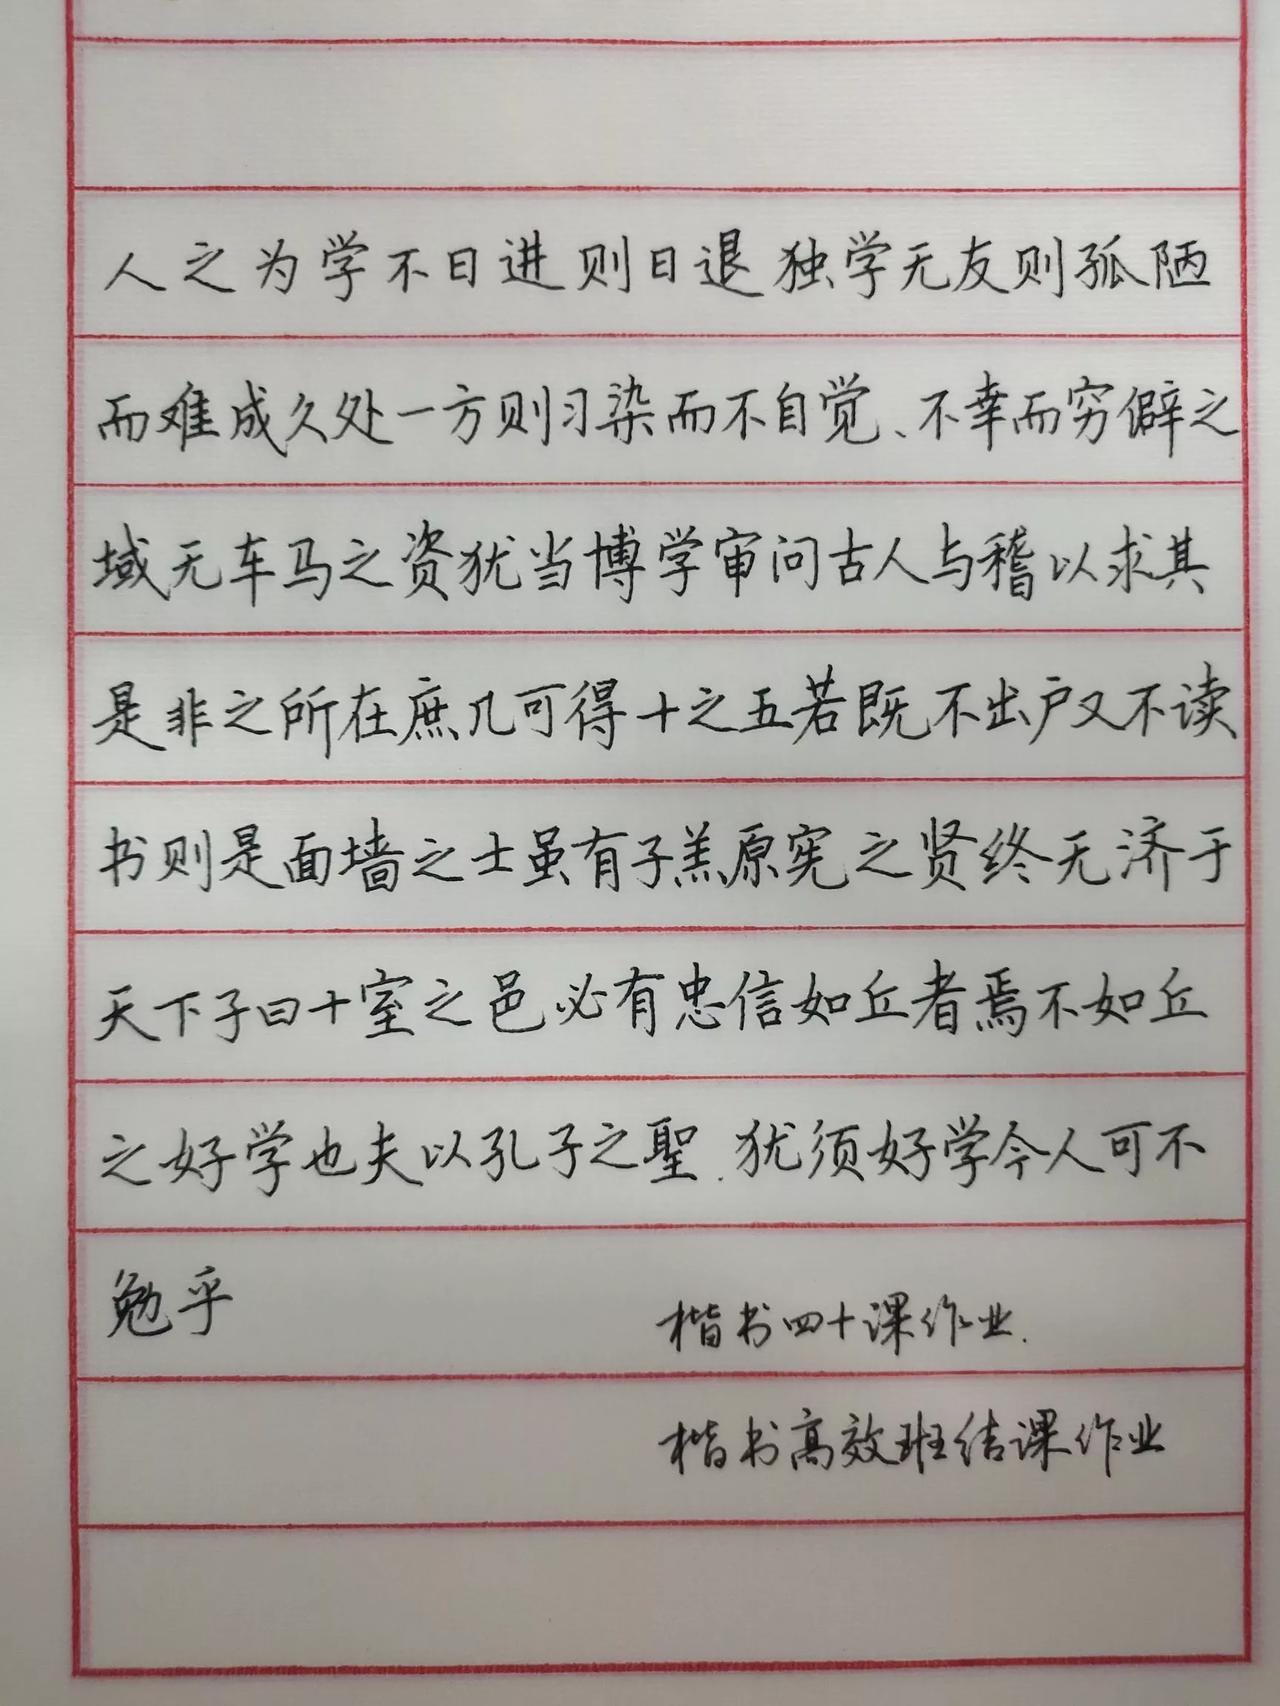 人之为学不日进则日退独学无友则孤陋
而难成久处一方则习染而不自觉、不幸而穷僻之
域无车马之资犹当博学审问古人与稽以求其
是非之所在庶几可得十之五若既不出户又不读
书则是面墙之士虽有子羔原宪之贤终无济于
天下子曰十室之邑必有忠信如丘者焉不如丘
之好学也夫以孔子之聖.犹须好学今人可不
勉乎
楷书四十课作业.
楷书高效班结课作业